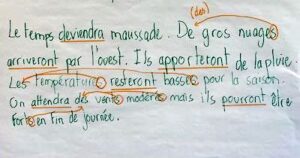 (des)
Le temps deviendra maussade. De gros nuages
arriveront par l'ouest. Ils apporteront de la pluie.
Les températures resteront basses pour la saison.
On attendra des vents modérés mais ils pourront être
forts en fin de journée.